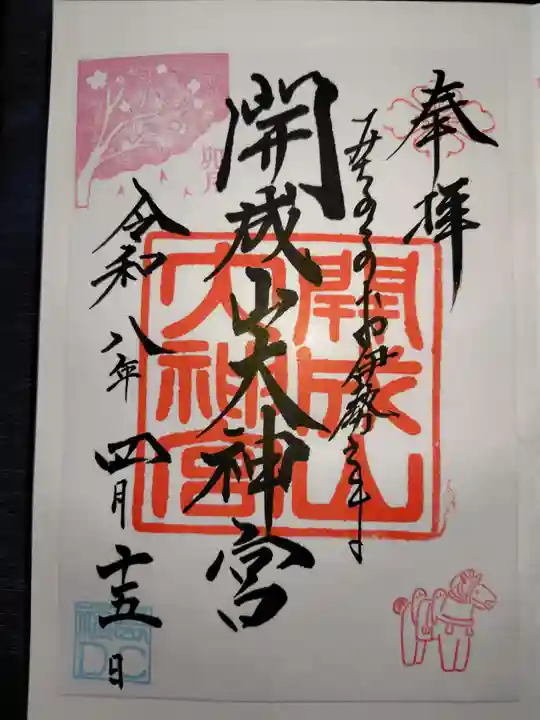 奉拝
みちのくのお伊勢さま
開成山大神宮
開成山
大神宮
卯月
令和八年四月十五日
DC